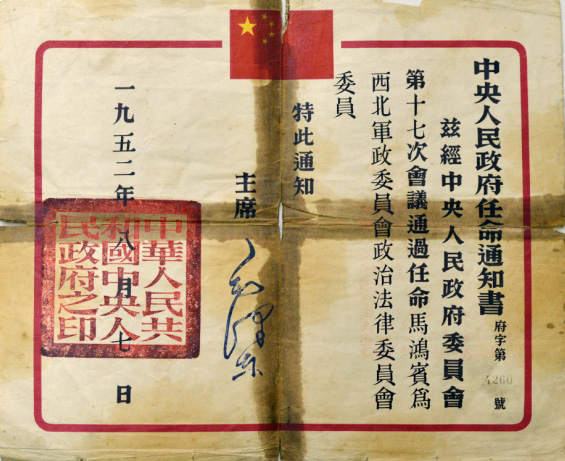 中央人民政府任命通知書
府字第4260號
茲經中央人民政府委員會
第十七次會議通過任命馬鴻賓爲
西北軍政委員會政治法律委員會
委員
特此通知
主席
毛澤東
一九五二年八月七日
中華人民共
和國中央人
民政府之印